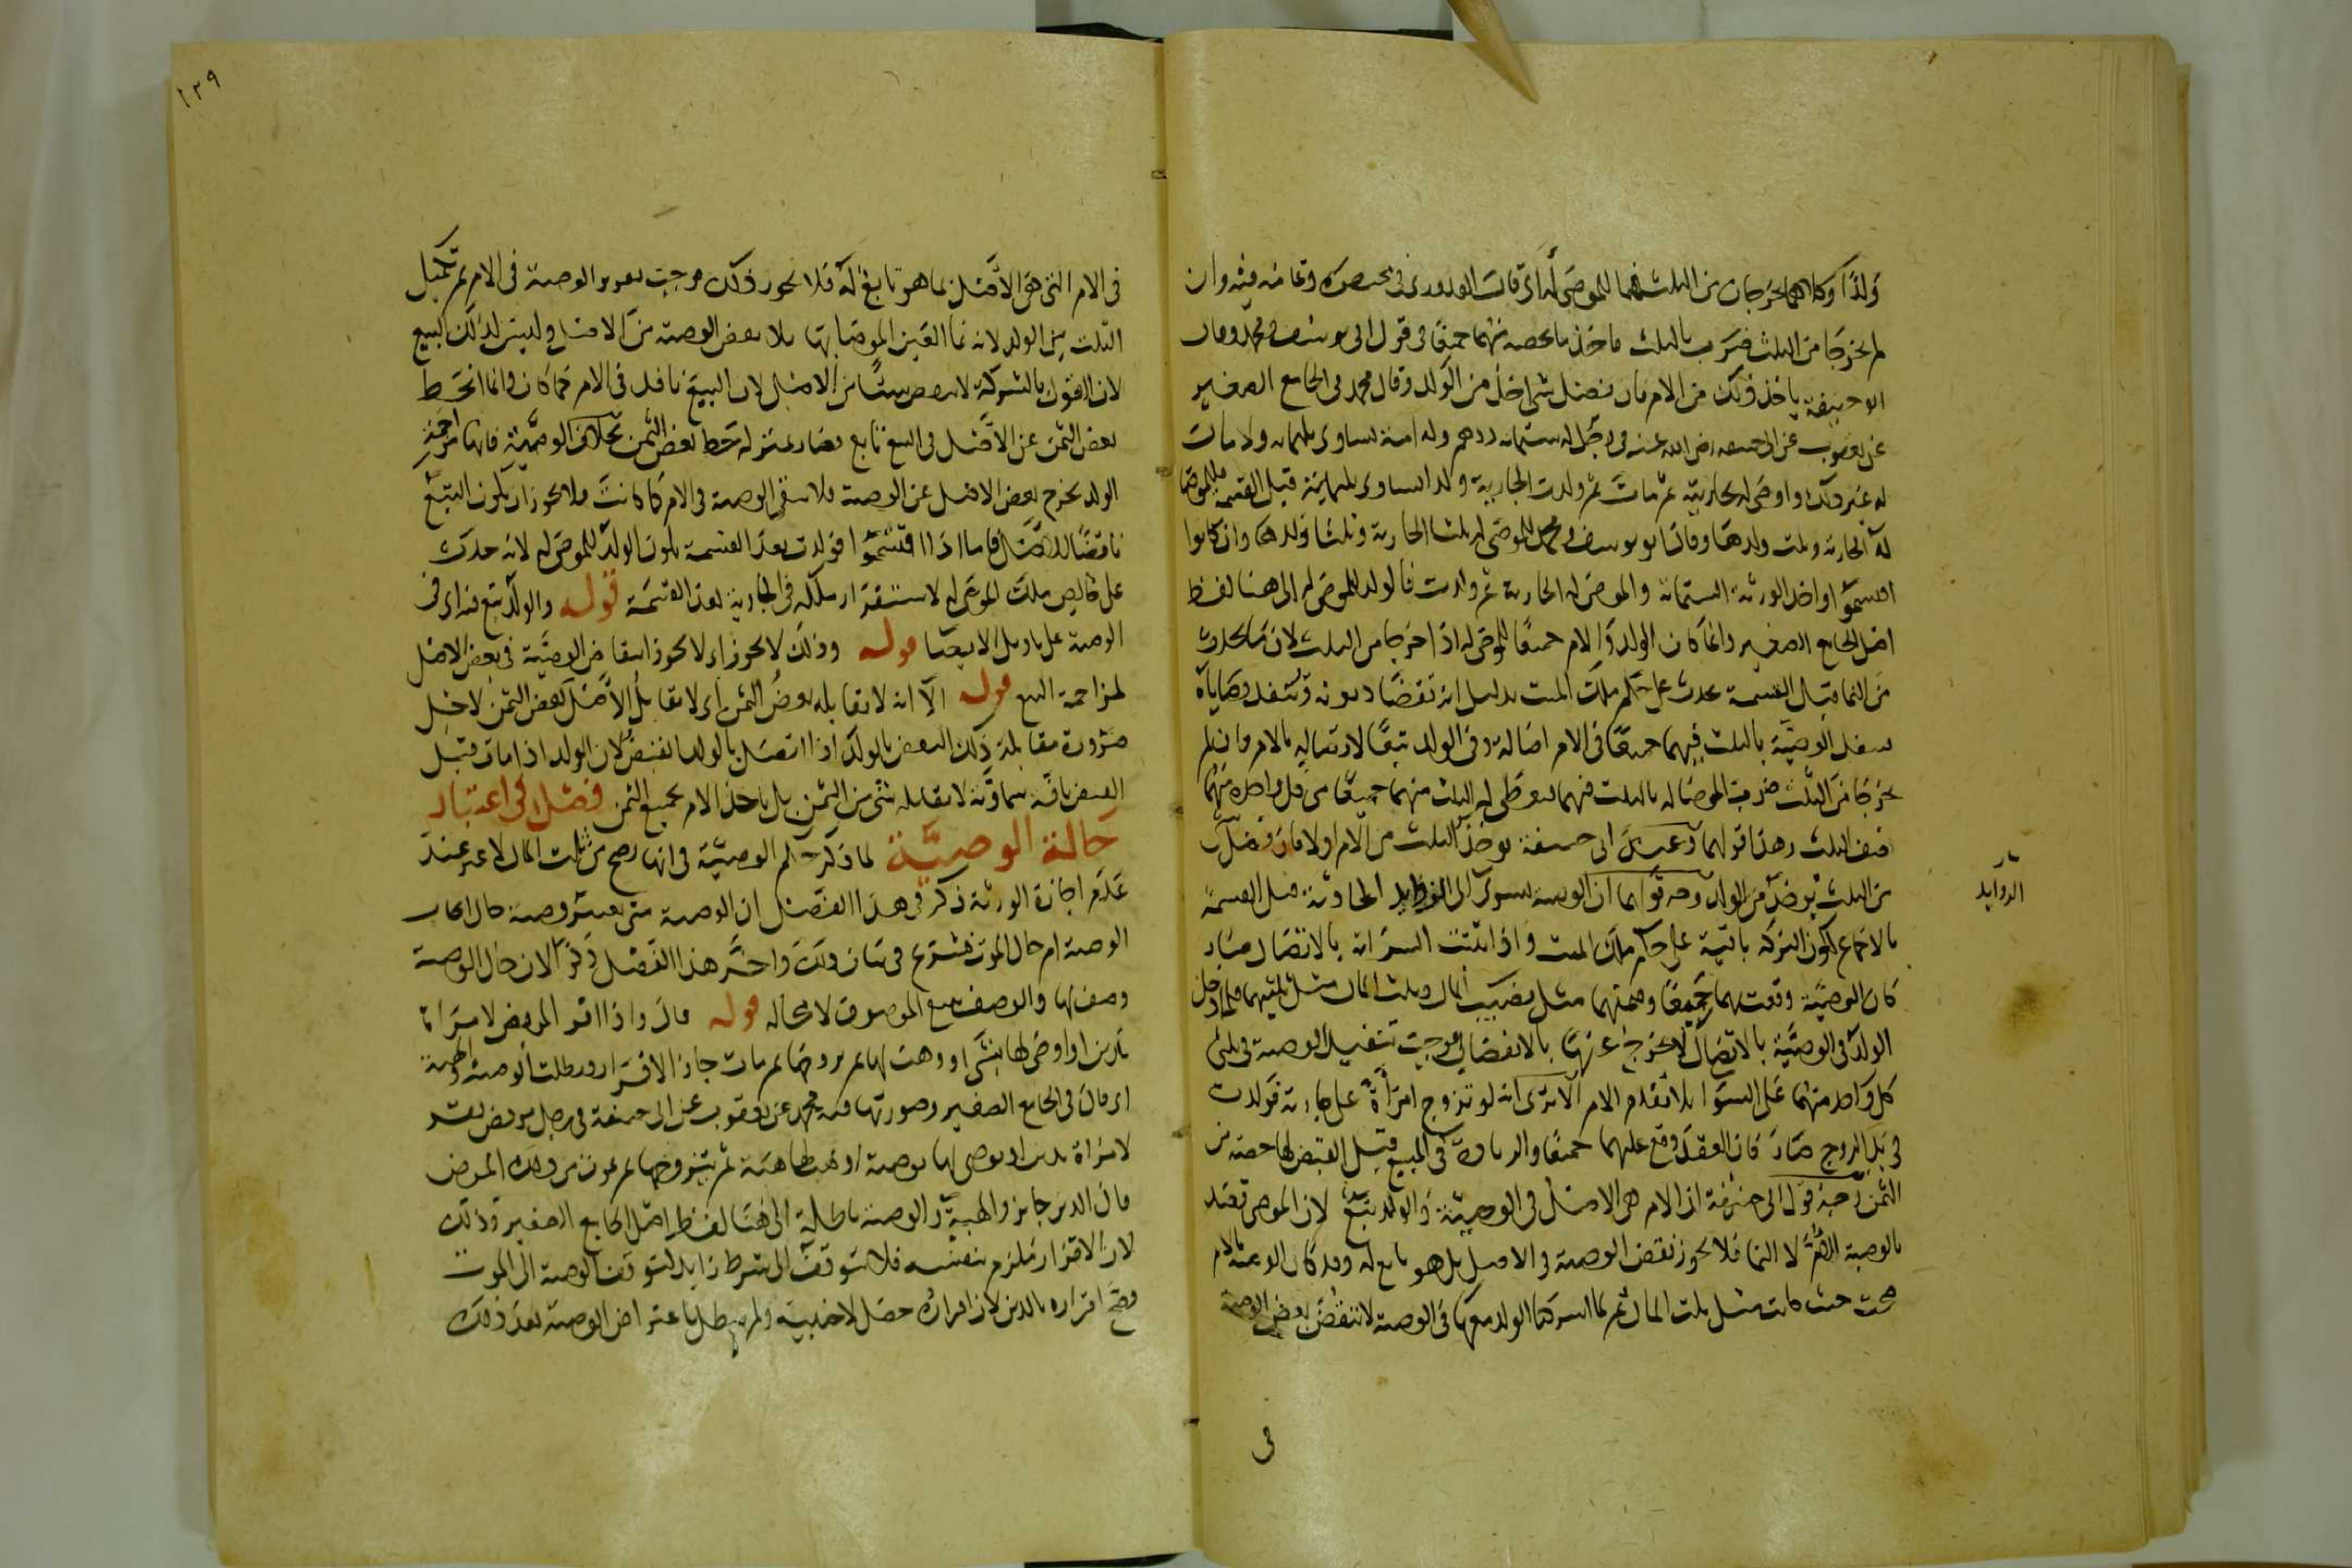 ولدا وكلاهما يخرجان من الثلث فهما للموصى له اى قال القدورى فى مختصره وتمامه فيه وان
لم يخرجا من الثلث ضرب بالثلث فاخذ ما يخصه منهما جميعا فى قول ابى يوسف ومحمد وقال
ابو حنيفة ياخذ ذلك من الام فان فضل شى اخذ من الولد وقال محمد فى الجامع الصغير
عن يعقوب عن ابى حنيفه رضى الله عنه فى رجل له ستمائه درهم وله امة تساوى ثلثمائه ولا مال
له غير ذلك واوصى له بجاريته ثم مات ثم ولدت الجارية ولدا يساوى ثلثمائة قبل القسمة فللموصا
له الجارية وثلث ولدها وقال ابو يوسف ومحمد للموصى له ثلثا الجارية وثلثا ولدها وان كانوا
اقتسموا واخذ الورثة الستمائة والموصى له الجارية ثم ولدت فالولد للموصى له الى هنا لفظ
اصل الجامع الصغير وانما كان الولد والام جميعا للموصى له اذا خرجا من الثلث لان ما يحدث
من النما قبل القسمة يحدث على حكم ملك الميت بدليل انه تقضا ديونه وتنفذ وصاياه
تنفذ الوصية بالثلث فيهما جميعا فى الام اصالة وفى الولد تبعا لاتصاله بالام وان لم
يخرجا من الثلث ضرب الموصا له بالثلث فيهما فيعطى له الثلث منهما جميعا من كل واحد منهما
نصف الثلث وهذا قولهما وعند ابى حنيفة يوخذ الثلث من الام اولا فان فضل
من الثلث يوخذ من الولد وجه قولهما ان الوصية تسرى الى الزوايد الحادثة قبل القسمة
الزوايد
بالاجماع لكون التركة باقية على حكم ملك الميت واذا ثبتت السراية بالاتصال صار
كان الوصية وقعت بهما جميعا وقيمتهما مثل نصيب المال وثلث المال مثل ثلثيهما فلما دخل
الولد فى الوصية بالاتصال لا يخرج عنها بالانفصال فوجب تنفيذ الوصية فى ثلثى
كل واحد منهما على السوا بلا تقدم الام الا ترى انه لو تزوج امراة على جارية فولدت
فى يد الزوج صار كان العقد وقع عليهما جميعا والزيادة فى المبيع قبل القبض لها حصة من
الثمن وجه قول ابى حنيفة ان الام هى الاصل فى الوصية والولد تبع لان الموصى قصد
بالوصية الام لا النما فلا يجوز نقض الوصية فى الاصل بل هو تابع له وقد كان الوصية بالام
صحت حيث كانت مثل ثلث المال ثم لما اشركنا الولد معها فى الوصية لانتقض بعض الوصية
فى
١٢٩
فى الام التى هى الاصل بما هو تابع له فلا يجوز ذلك فوجب تقرير الوصية فى الام ثم تكميل
الثلث من الولد لانه نما العين الموصا بها بلا نقض الوصية من الاصل وليس لذلك البيع
لان القول بالشركة لا ينقض شيئا من الاصل لان البيع نافذ فى الام كما كان وانما انحط
بعض الثمن عن الاصل فى البيع تابع فصار بمنزلة حط بعض الثمن بخلاف الوصية فانها
الولد يخرج بعض الاصل عن الوصية فلا تبقى الوصية فى الام كما كانت فلا يجوز ان يكون التبع
ناقضا للاصل فاما اذا اقتسموا فولدت بعد القسمة يكون الولد للموصى له لانه حدث
على خالص ملك الموصى له لاستقرار ملكه فى الجارية بعد القسمة قوله والولد تبع فيه اى فى
الوصية على تاويل الايصا قوله وذلك لا يجوز اى لا يجوز انتقاض الوصية فى بعض الاصل
لمزاحمة التبع قوله الا انه لا يقابله بعض الثمن اى لا يقابل الاصل بعض الثمن لاجل
ضرورة مقابلة ذلك البعض بالولد اذا اتصل بالولد القبض لان الولد اذا مات قبل
القبض بافة سماوية لا يقابله شى من الثمن بل ياخذ الام بجميع الثمن فصل فى اعتبار
حالة الوصية لما ذكر حكم الوصية فى انها تصح من ثلث المال لا غير عند
عدم اجازة الورثة ذكر فى هذا الفصل ان الوصية متى يعتبر وصية حال ايجاب
الوصية ام حال الموت فشرع فى بيان ذلك واخر هذا الفصل ذكرا لان حال الوصية
وصف لها والوصف يتبع الموصوف لا محالة قوله قال واذا اقر المريض لامراة
بدين او اوصى لها بشى او وهب لها ثم تزوجها ثم مات جاز الاقرار وبطلت الوصية والهبة
اى قال فى الجامع الصغير وصورتها فيه محمد عن يعقوب عن ابى حنيفة فى رجل مريض يقر
لامراة بدين او يوصى لها بوصية او يهب لها هبة ثم يتزوجها ثم يموت من ذلك المرض
قال الدين جايز والهبة والوصية باطلة الى هنا لفظ اصل الجامع الصغير وذلك
لان الاقرار ملزم بنفسه فلا يتوقف الى شرط زايد كتوقف الوصية الى الموت
فصح اقراره بالدين لان اقراره حصل لاجنبية ولم يبطل باعتراض الوصية بعد ذلك